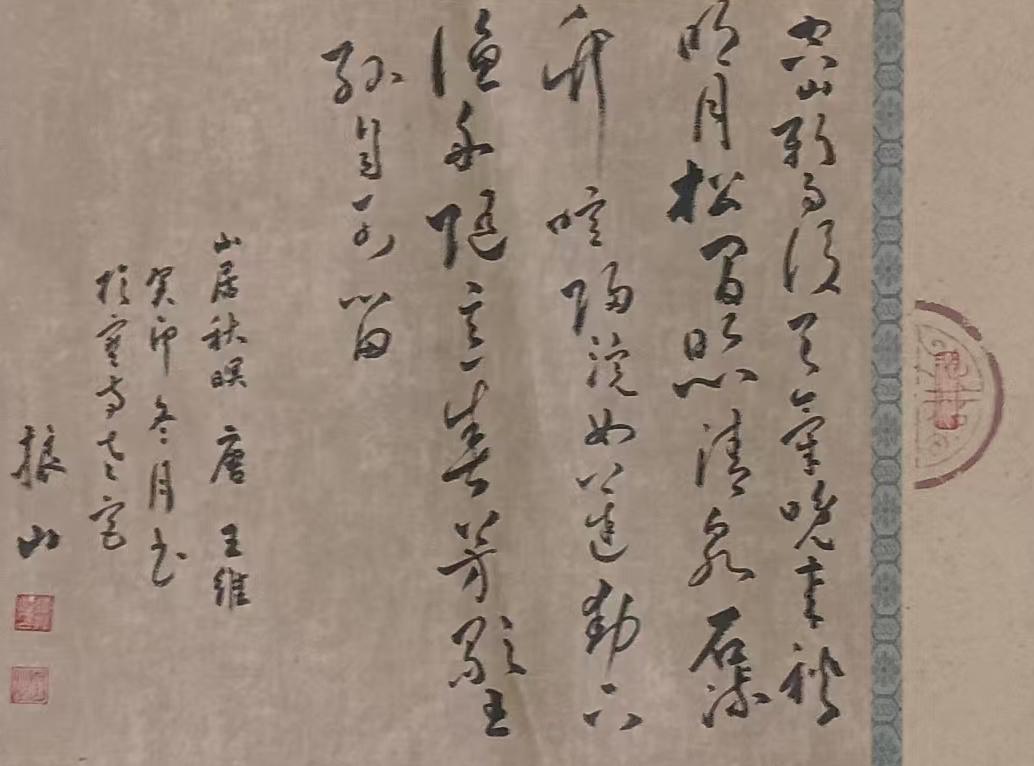 空山新雨後天氣晚來秋
明月松間照清泉石流
竹喧歸浣女蓮動下
漁舟隨意春芳歇王
孫自可留
山居秋暝 唐 王維
癸卯冬月书
於寒
振山